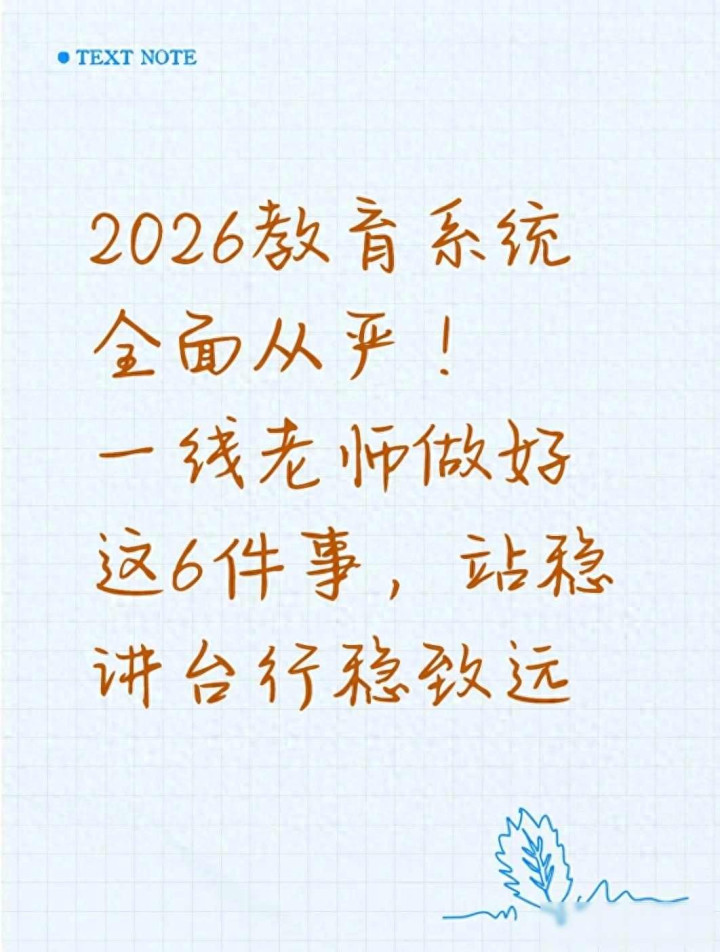 TEXT NOTE
2026教育系统
全面从严！
一线老师做好
这6件事，站稳
讲台行稳致远